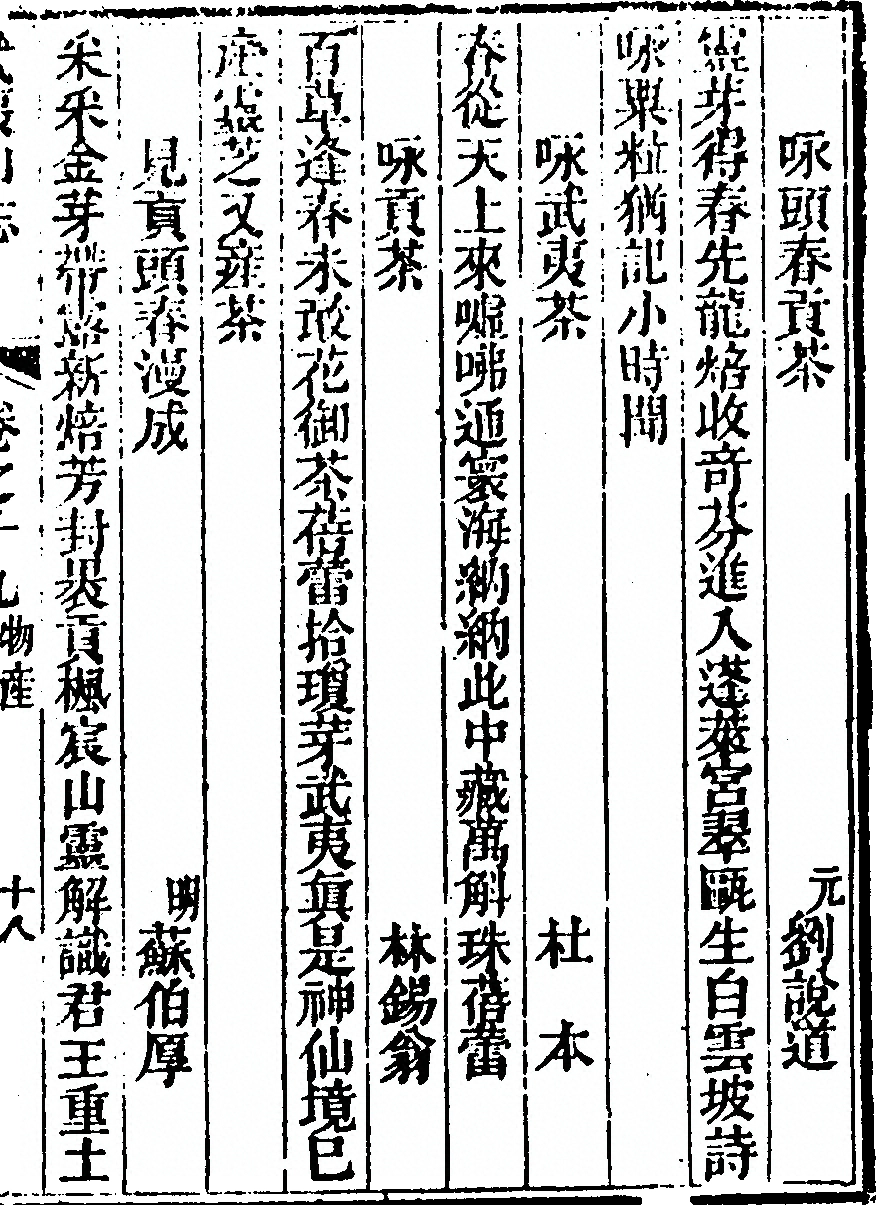 咏頭春貢茶　元劉說道
靈芽得春先龍焙收奇芬進入蓬萊宮翠甌生白雲坡詩
咏粟粒猶記小時聞
咏武夷茶　杜本
春從天上來噓咈通寰海納納此中藏萬斛珠蓓蕾
咏貢茶　林錫翁
百草逢春未敢花御茶蓓蕾拾瓊芽武夷眞是神仙境已
產靈芝又產茶
見貢頭春漫成　明蘇伯厚
采采金芽帶露新焙芳封裹貢楓宸山靈解識君王重土
武夷山志　卷之十九物産　十八